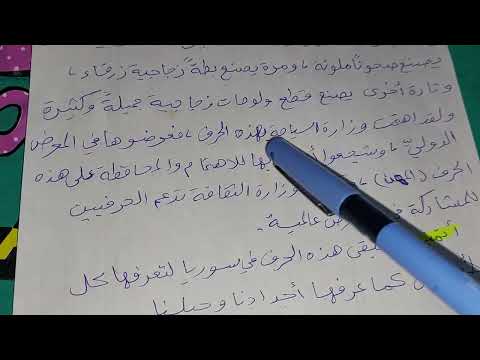 يصنع صحوناً ملونة، ومرة يصنع بطةً زجاجية زرقاء،
وتارة أخرى يصنع قطع ولوحات زجاجية جميلة وكثيرة
ولقد اهتمت وزارة السياحة بهذه الحرف، فعرضوها في المعرض
الدوليّ، وشجعوا للاهتمام والمحافظة على هذه
الحرف (المهن)، وزارة الثقافة تدعم الحرفيين
للمشاركة في عالمية.
تبقى هذه الحرف في سوريا لتعرفها كل
كما عرفها أجدادنا وجيلنا